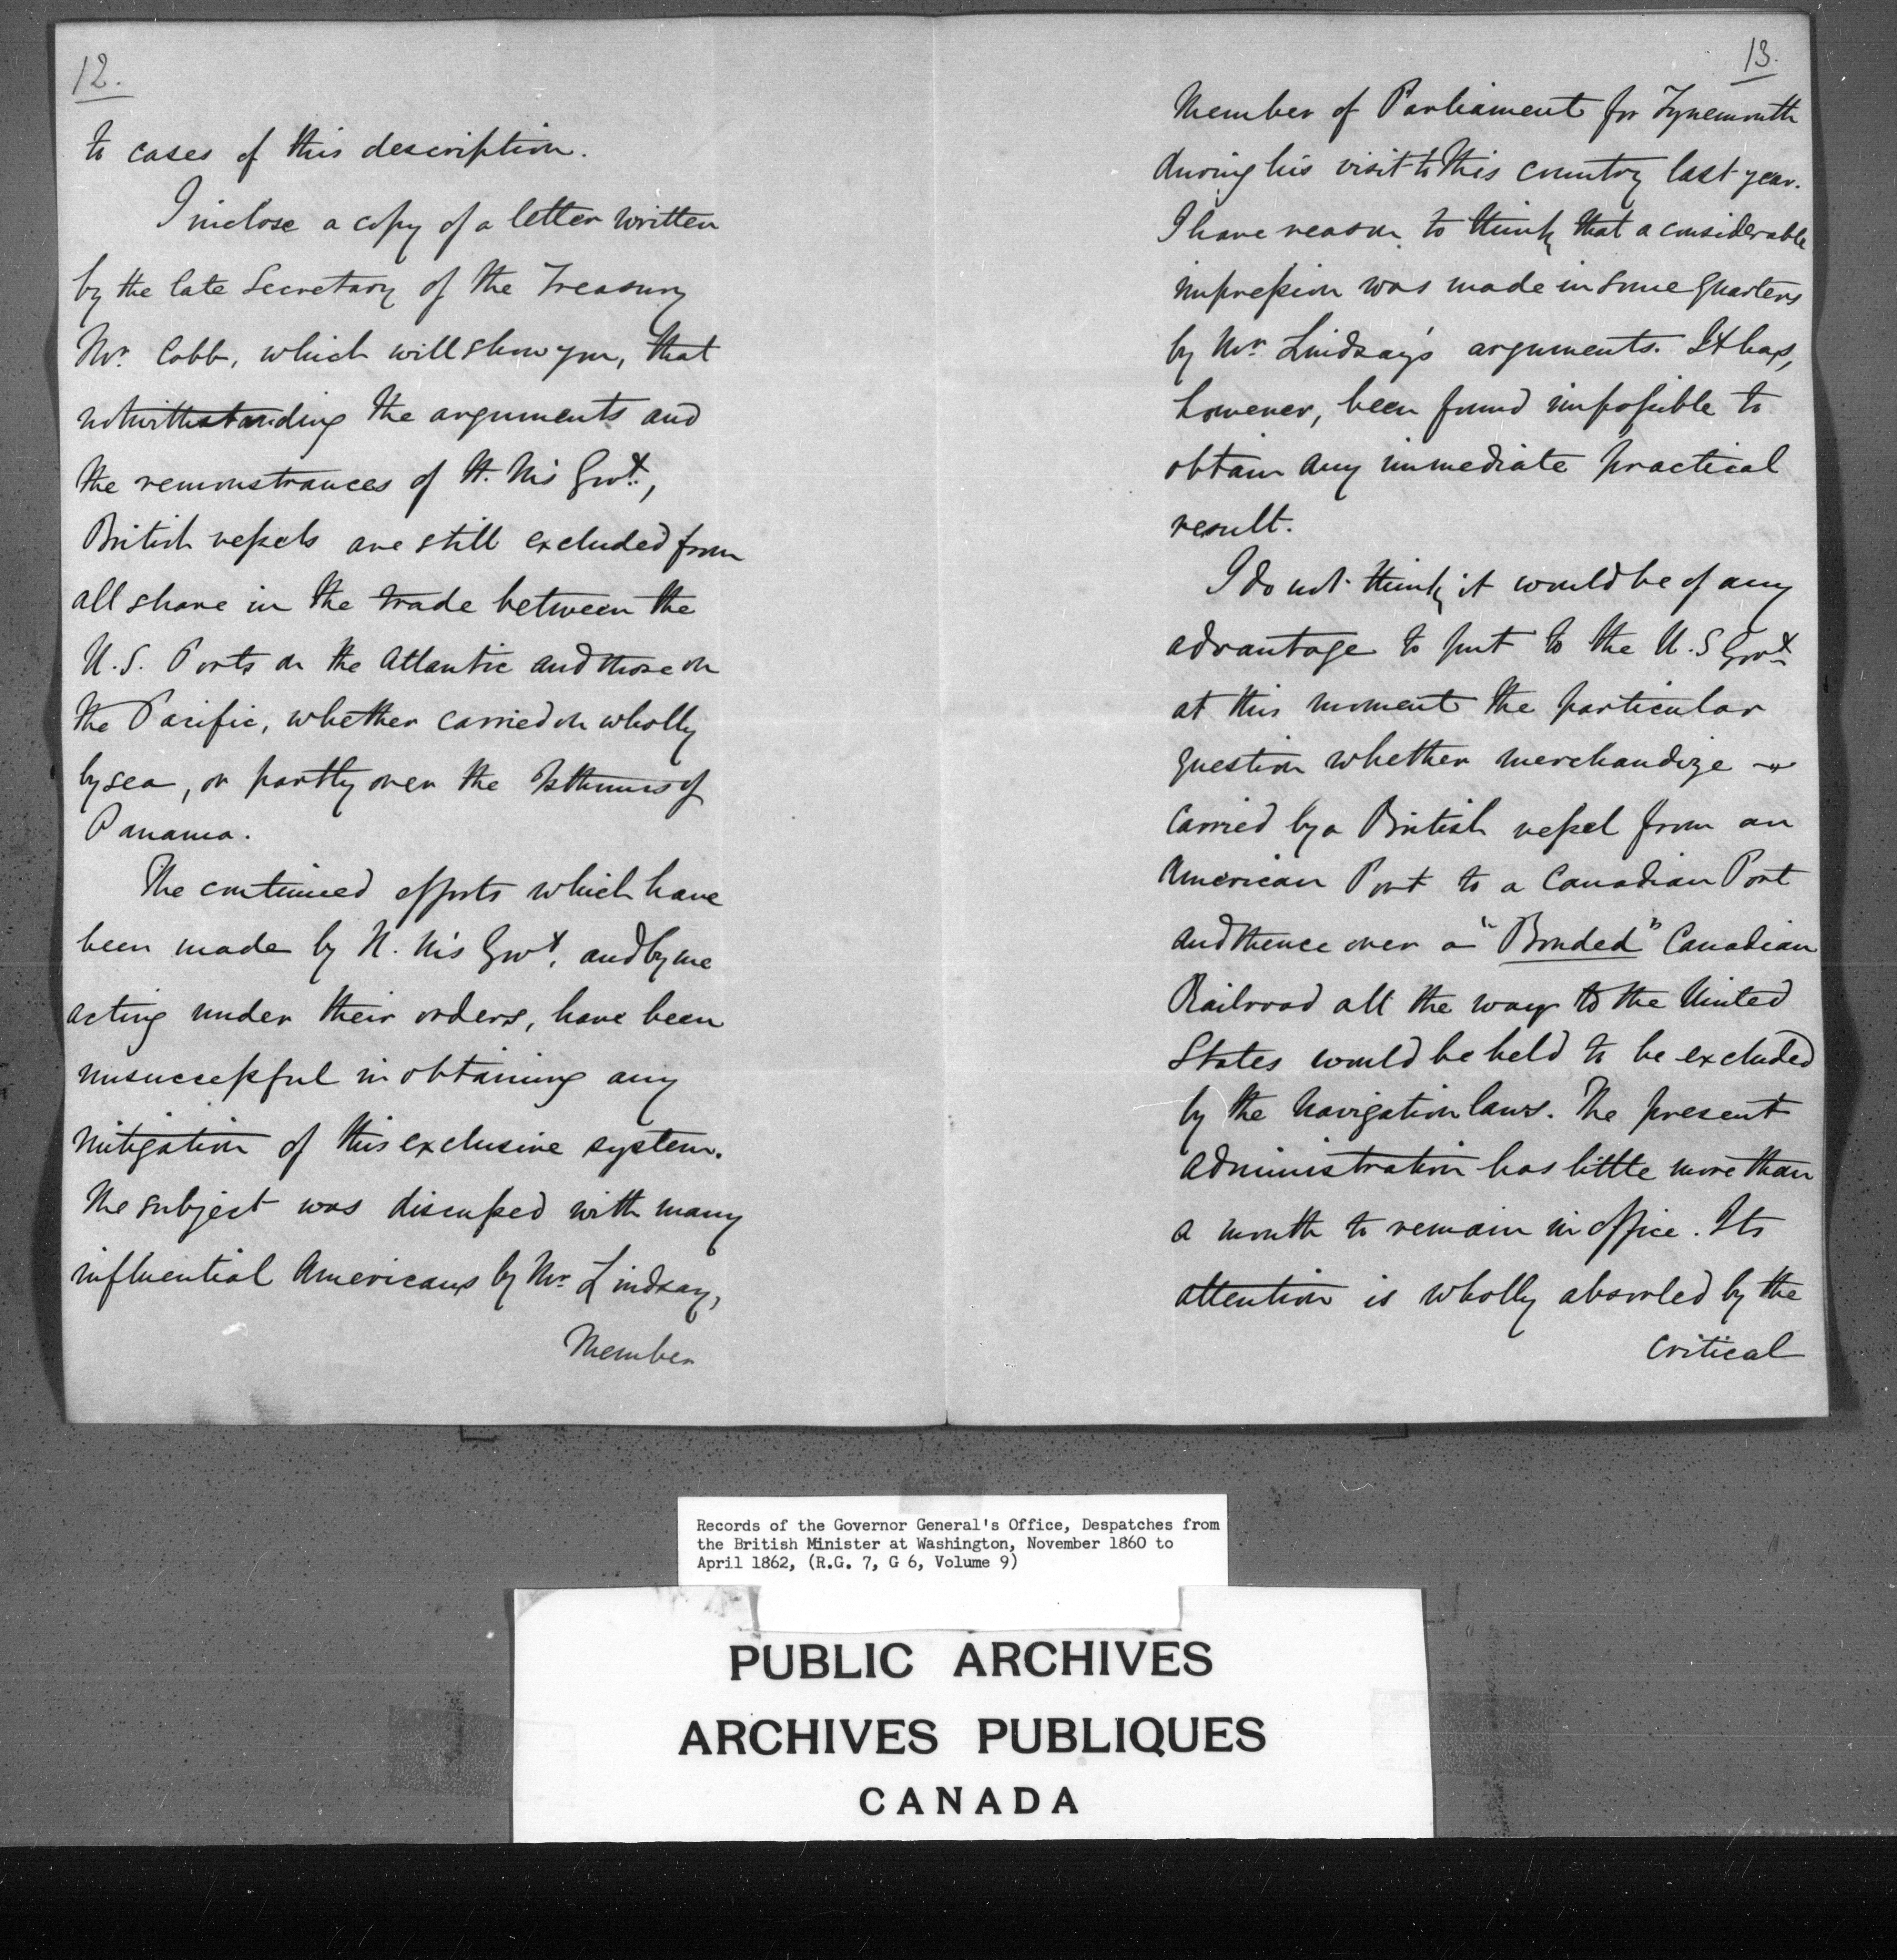 12.
to cases of this description.
I inclose a copy of a letter written
by the late Secretary of the Treasury
Mr. Cobb, which will show you, that
notwithstanding the arguments and
the remonstrances of H. M's Govt.,
British vessels are still excluded from
all share in the trade between the
U.S. Ports on the Atlantic and those on
the Pacific, whether carried on wholly
by sea, or partly over the Isthmus of
Panama.
The continued efforts which have
been made by H. M's Govt. and by me
acting under their orders, have been
unsuccessful in obtaining any
mitigation of this exclusive system.
The subject was discussed with many
influential Americans by Mr. Lindsay,
Member
13.
Member of Parliament for Tynemouth
during his visit to this country last year.
I have reason to think that a considerable
impression was made in some quarters
by Mr. Lindsay's arguments. It has,
however, been found impossible to
obtain any immediate practical
result.
I do not think it would be of any
advantage to put to the U.S Govt.
at this moment the particular
question whether merchandize
carried by a British vessel from an
American Port to a Canadian Port
and thence over a "Bonded" Canadian
Railroad all the way to the United
States would be held to be excluded
by the Navigation laws. The present
administration has little more than
a month to remain in office. Its
attention is wholly absorbed by the
critical
Records of the Governor General's Office, Despatches from
the British Minister at Washington, November 1860 to
April 1862, (R.G. 7, G 6, Volume 9)
PUBLIC ARCHIVES
ARCHIVES PUBLIQUES
CANADA